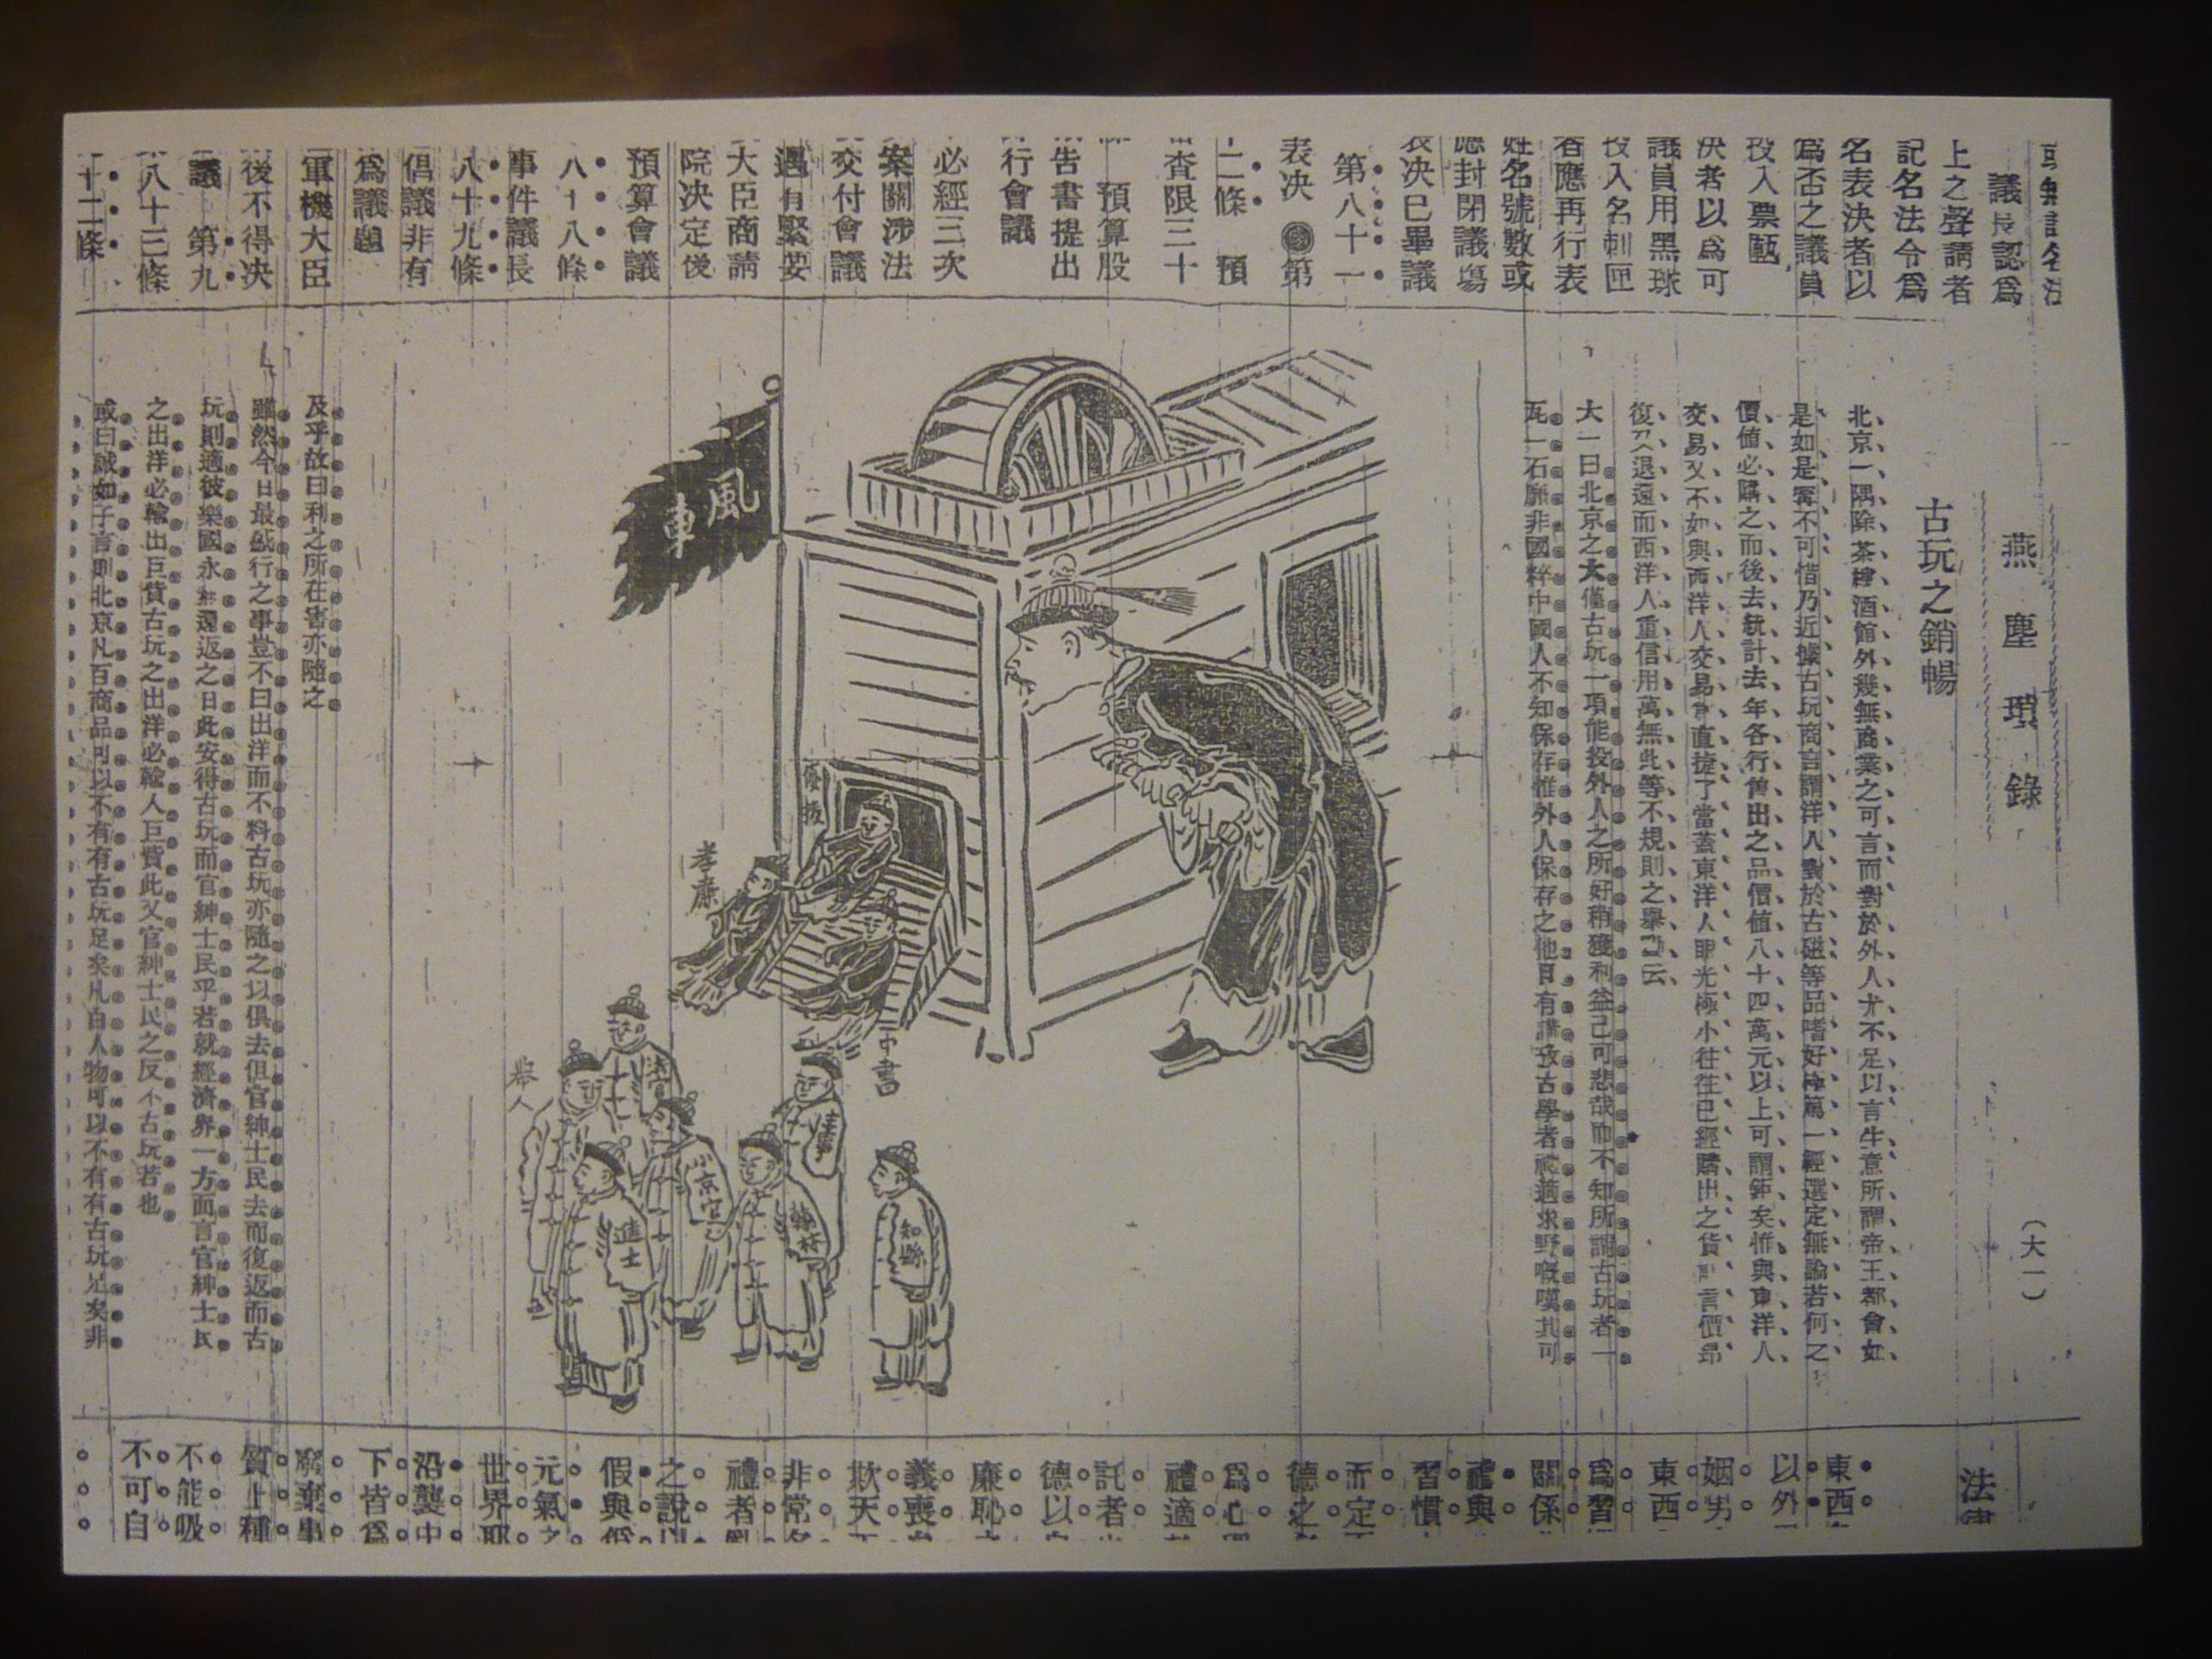 議長認爲
上之聲請者
記名法令爲
名表决者以
爲否之議員
投入票甌
决者以爲可
議員用黑球
投入名刺匣
者應再行表
姓名號數或
應封閉議場
表决已畢議
第八十一
表决 第
二條 預
審査限三十
預算股
告書提出
行會議
必經三次
案關涉法
交付會議
遇有緊要
大臣商請
院决定後
預算會議
八十八條
事件議長
八十九條
倡議非有
爲議題
軍機大臣
後不得决
議 第九
八十三條
十二條
燕塵瑣錄
(大一)
古玩之銷暢
北京一隅除茶樓酒館外幾無商業之可言而對於外人尤不足以言生意所謂帝王都會如
是如是寗不可惜乃近據古玩商言謂洋人對於古磁等品嗜好極篤一經選定無論若何之
價値必購之而後去統計去年各行售出之品價値八十四萬元以上可謂鉅矣惟與東洋人
交易又不如與西洋人交易之直捷了當蓋東洋人眼光極小往往已經購出之貨 言價昂
復又退還而西洋人重信用萬無此等不規則之舉動云
大一曰北京之大僅古玩一項能投外人之所好稍獲利益已可悲哉而不知所謂古玩者一
瓦一石靡非國粹中國人不知保存惟外人保存之他日有講攷古學者禮適求野嘅嘆其可
風車
優拔
孝廉
中書
舉人
法官
主事
小京官
進士
翰林
知縣
及乎故曰利之所在害亦隨之
雖然今日最盛行之事豈不曰出洋而不料古玩亦隨之以俱去但官紳士民去而復返而古
玩則適彼樂國永無還返之日此安得古玩而官紳士民乎若就經濟界一方面言官紳士民
之出洋必輸出巨貲古玩之出洋必輸人巨貲此又官紳士民之反不古玩若也
或曰誠如子言則北京凡百商品可以不有有古玩足矣凡百人物可以不有有古玩足矣非
法律
東西
以外
姻男
東西
爲習
關係
禮與
習慣
而定
德之
爲心
禮適
託者
德以
廉恥
義喪
欺天
非常
禮者
之說
假與
元氣
世界
沿襲中
下皆爲
廢棄
質上種
不能吸
不可自